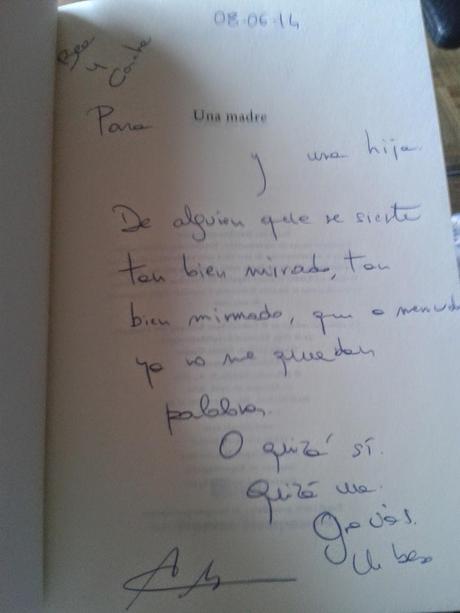 08-06-14
Bea
y
Concha
Para Una madre
y una hija.
De alguien que se siente
tan bien mirado, tan
bien mimado, que a menudo
ya no me quedan
palabras.
O quizá sí.
Quizá una.
Gracias.
Un beso